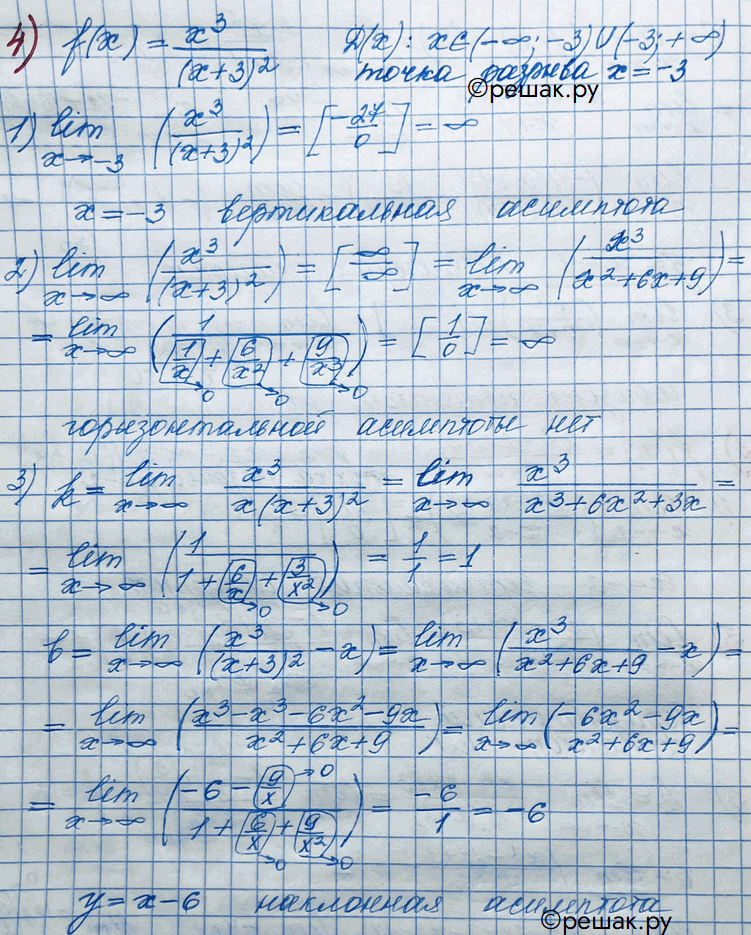 4) f(x) = x³/(x+3)² D(x): x∈(-∞; -3)∪(-3; +∞)
точка разрыва x = -3
©решак.ру
1) lim x→-3 (x³/(x+3)²) = [-27/0] = ∞
x = -3 вертикальная асимптота
2) lim x→∞ (x³/(x+3)²) = [∞/∞] = lim x→∞ (x³/(x²+6x+9)) =
= lim x→∞ (1/(1/x→0 + 6/x²→0 + 9/x³→0)) = [1/0] = ∞
горизонтальной асимптоты нет
3) k = lim x→∞ x³/(x(x+3)²) = lim x→∞ x³/(x³+6x²+3x) =
= lim x→∞ (1/(1 + 6/x→0 + 3/x²→0)) = 1/1 = 1
b = lim x→∞ (x³/(x+3)² - x) = lim x→∞ (x³/(x²+6x+9) - x) =
= lim x→∞ ((x³-x³-6x²-9x)/(x²+6x+9)) = lim x→∞ ((-6x²-9x)/(x²+6x+9)) =
= lim x→∞ ((-6 - 9/x→0)/(1 + 6/x→0 + 9/x²→0)) = -6/1 = -6
y = x-6 наклонная асимптота
©решак.ру